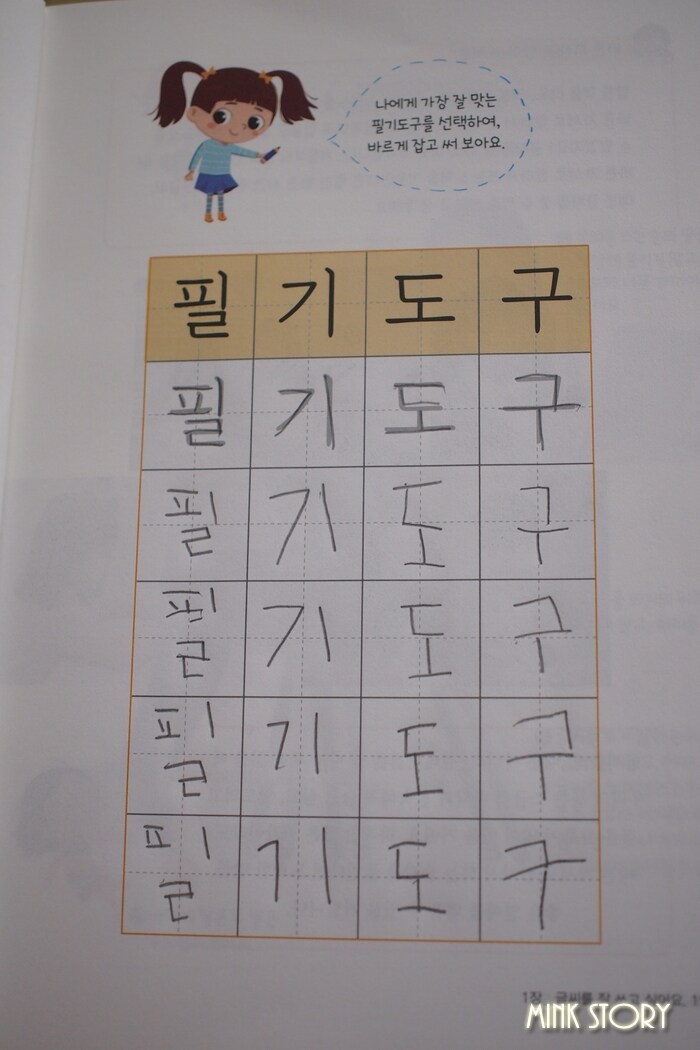 나에게 가장 잘 맞는
필기도구를 선택하여,
바르게 잡고 써 보아요.
필 기 도 구
필 기 도 구
필 기 도 구
필 기 도 구
필 기 도 구
필 기 도 구
1장 글씨를 잘 쓰고 싶어요.
MINK STORY